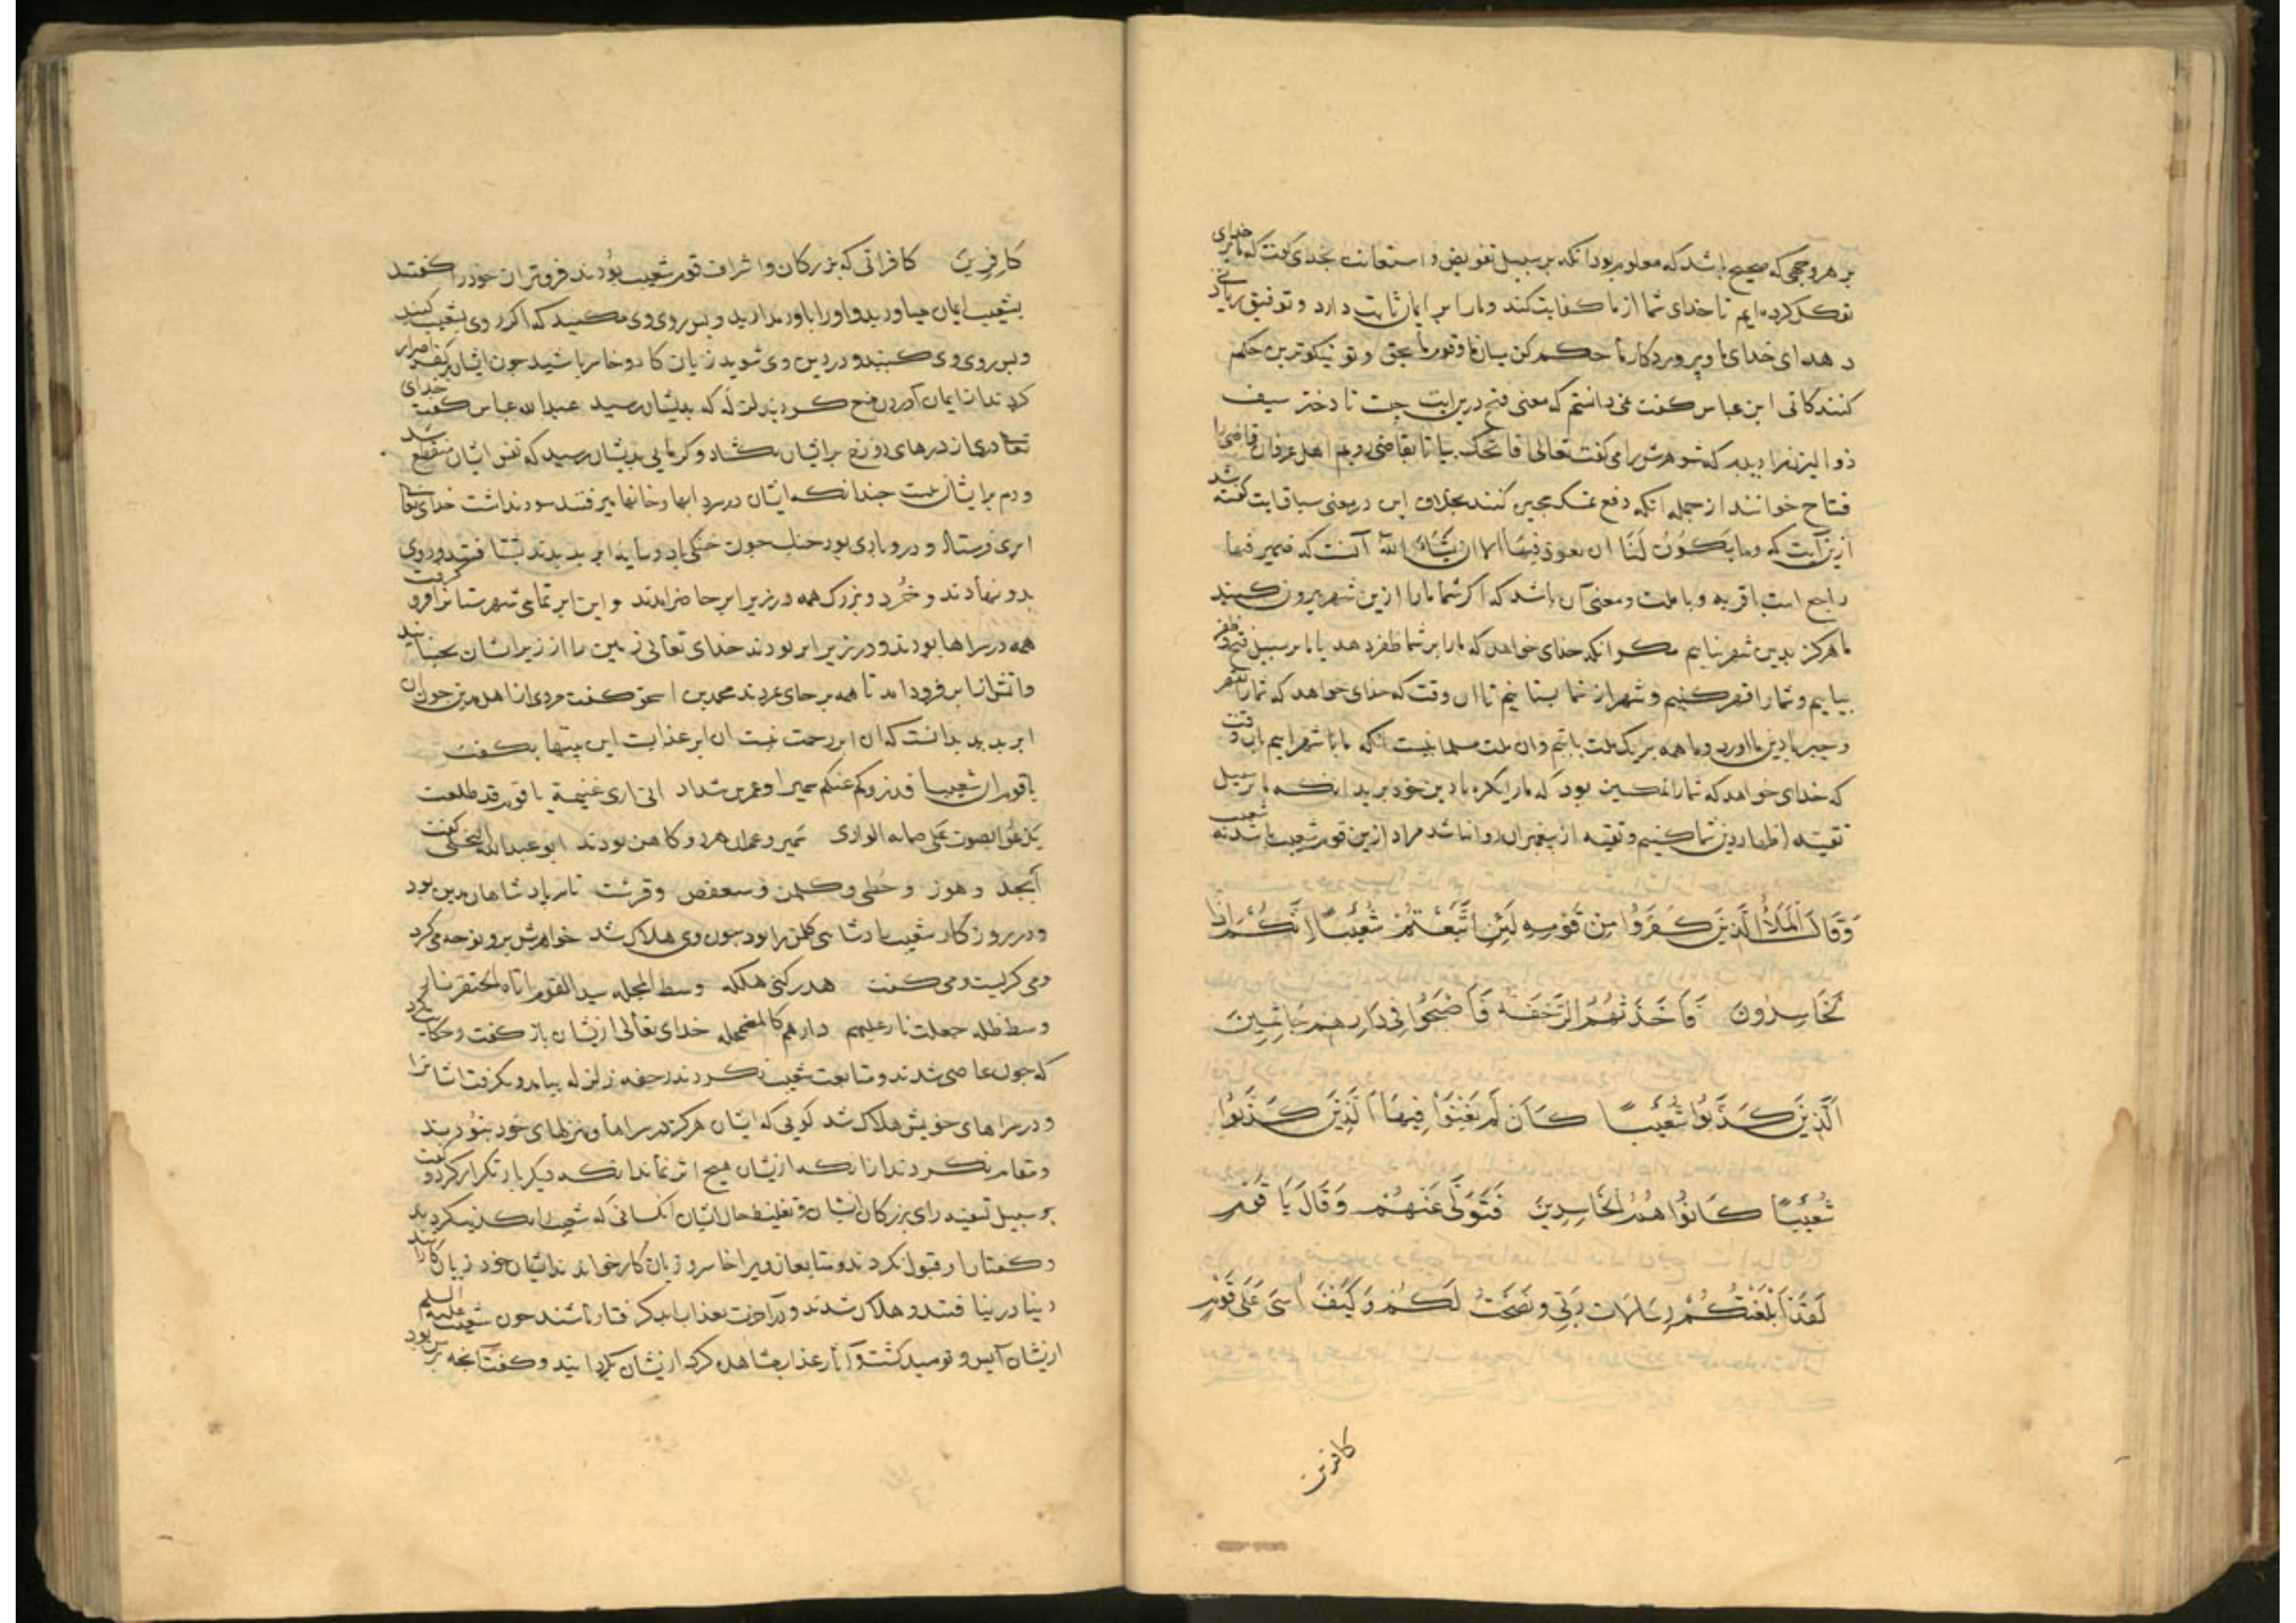 بر هر وجهی که صحیح باشد که معلوم بود آنکه بر سبیل تفویض و استعانت بخدای گفت که ما بر خدای
توکل کرده ایم تا خدای شما از ما کفایت کند و ما را بر ایمان ثابت دارد و توفیق زیادتی
دهد ای خدای ما و پروردکار ما حکم کن میان ما و قوم ما بحق و تو نیکوترین حکم
کنندکانی ابن عباس کفت نمی دانستم که معنی فتح درین ایت چیست تا دختر سیف
ذو الیزن را دیدم که شوهرش را می کفت تعالی افاتحک بیا تا بقاضی رویم اهل عرفان قاضی را
فتاح خوانند از جمله انکه دفع تمسک مجبر کنند بخلاف این در معنی سیاقت ایت کفته شد
ازین آیت که وما یکون لنا ان نعود فیها الا ان یشاء الله آنست که ضمیر فیها
راجع است با قریه و با ملت و معنی آن باشد که اکر شما ما را ازین شهر بیرون کنید
ما هرکز بدین شهر نیاییم مکر انکه خدای خواهد که ما را بر شما ظفر دهد یا ما بر سبیل فتح و ظفر
بیاییم و شما را قهر کنیم و شهر از شما بستانیم تا ان وقت که خدای خواهد که شما را بقهر
و جبر با دین ما اورد و ما همه بر یک ملت باشیم وان ملت مسلمانیست انکه ما با شهر اییم بان وقت
که خدای خواهد که شما را تمکین بود که ما را بکره با دین خود برید انکه ما بر سبیل
تقیه اظهار دین شما کنیم و تقیه از پیغمبران روا نباشد مراد ازین قوم شعیب باشد نه شعیب
وَقَالَ الْمَلَأُ الَّذِينَ كَفَرُوا مِن قَوْمِهِ لَئِنِ اتَّبَعْتُمْ شُعَيْبًا إِنَّكُمْ إِذًا
لَخَاسِرُونَ فَأَخَذَتْهُمُ الرَّجْفَةُ فَأَصْبَحُوا فِي دَارِهِمْ جَاثِمِينَ
الَّذِينَ كَذَّبُوا شُعَيْبًا كَأَن لَمْ يَغْنَوْا فِيهَا الَّذِينَ كَذَّبُوا
شُعَيْبًا كَانُوا هُمُ الْخَاسِرِينَ فَتَوَلَّى عَنْهُمْ وَقَالَ يَا قَوْمِ
لَقَدْ أَبْلَغْتُكُمْ رِسَالَاتِ رَبِّي وَنَصَحْتُ لَكُمْ وَكَيْفَ آسَى عَلَى قَوْمٍ
کافرین
كَافِرِينَ کافرانی که بزرکان و اشراف قوم شعیب بودند فروتران خود را کفتند
بشعیب ایمان میاورید و او را باور مدارید و پس روی وی مکنید که اکر روی بشعیب کنید
و پس روی وی کنید و در دین وی شوید زیان کار و خاسر باشید چون ایشان بر کفر اصرار
کردند از ایمان آوردن منع کردند زلزله بدیشان رسید عبدالله عباس کفت خدای
تعالی دری از درهای دوزخ بر ایشان بکشاد و کرمایی بدیشان رسید که نفس ایشان منقطع شد
و دم بر ایشان ببست چندانکه ایشان در سردابها و خانها میرفتند سود نداشت خدای تعالی
ابری فرستاد و در و بادی بود خنک چون خنکی باد و سایه ابر بدیدند بشتافتند و روی
بدو نهادند و خُرد و بزرک همه در زیر ابر حاضر امدند و این ابر تمامی شهرستان را فرو کرفت
همه در سراها بودند و در زیر ابر بودند خدای تعالی زمین را از زیر ایشان بجنبانید
و اتش از ابر فرود امد تا همه بر جای مردند محمد بن اسحق کفت مردی از اهل مدین چون ان
ابر بدید بدانست که ان ابر رحمت نیست ان ابر عذابست این بیتها بکفت
یا قوم ان شعیبا قد نزوکم عنکم سمیرا و عمر بن شداد انی اری غنیمة یا قوم قد طلعت
یدعوا بصوت علی صمانه الوادی سمیر و عمران هر دو کاهن بودند ابو عبدالله البجلی کفت
أبجد و هوز و حطی و کلمن و سعفص و قرشت نام پادشاهان مدین بود
و در روزکار شعیب پادشاهی کلمن را بود چون وی هلاک شد خواهرش برو نوحه می کرد
و می کریست و می کفت هدر کنی هلکه وسط المحله سید القوم اتاه الحتف نار
وسط ظله جعلت نار علیهم دارهم کالمضمحله خدای تعالی ازیشان باز کفت و حکایت کرد
که چون عاصی شدند و متابعت شعیب نکردند رجفه زلزله بیامد و بکرفت ایشانرا
و در سراهای خویش هلاک شد کویی که ایشان هرکز در سراها و منزلهای خود نبودند
و مقام نکردند از انکه ازیشان هیچ اثر نماند انکه دیکر بار تکرار کرد و کفت
بر سبیل تسفیه رای بزرکان ایشان و تغلیظ حال ایشان انکسانی که شعیب را تکذیب کردند
و کفتار او قبول نکردند و متابعان ویرا خاسر و زیان کار خواندند ایشان خود زیان کار شدند
دنیا در نیافتند و هلاک شدند و در آخرت بعذاب ابد کرفتار باشند چون شعیب علیه السلم
ازیشان آیس و نومید کشت و آثار عذاب مشاهده کرد ازیشان بکردانید و کفت آنچه بر من بود